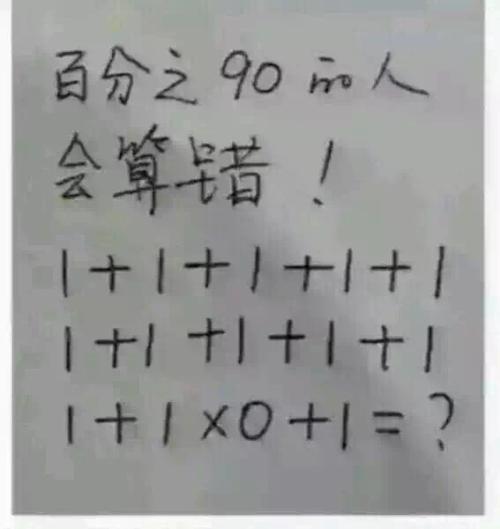 百分之90的人
会算错！
1+1+1+1+1
1+1+1+1+1
1+1×0+1=？